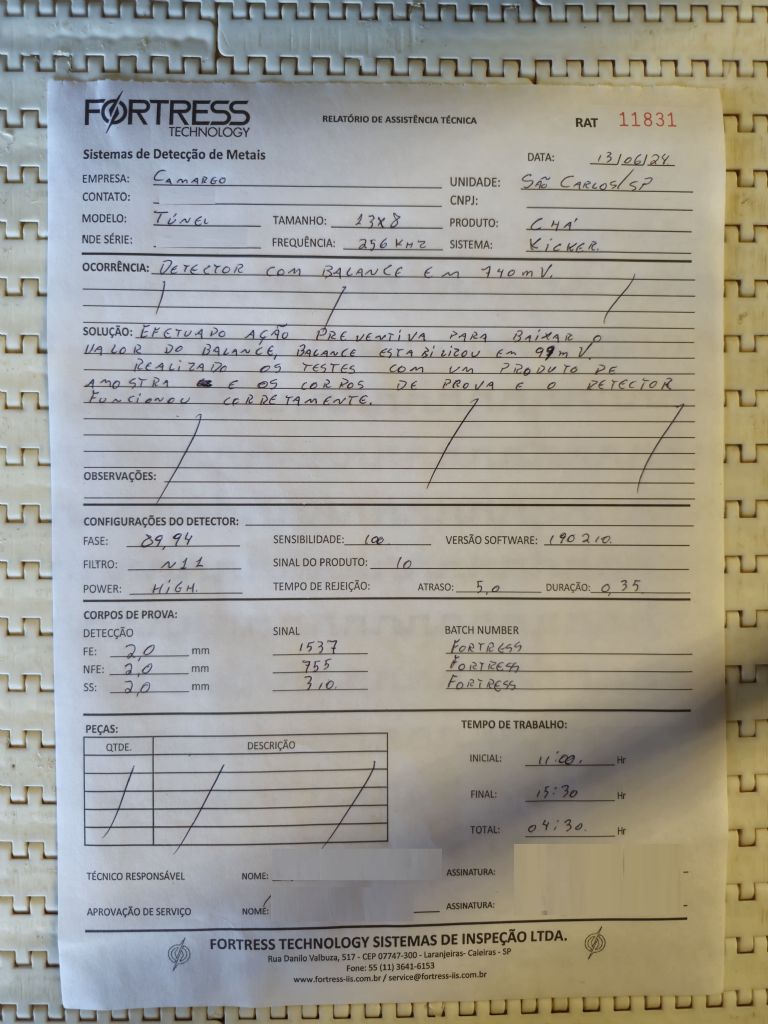 FORTRESS
TECHNOLOGY
RELATÓRIO DE ASSISTÊNCIA TÉCNICA
RAT 11831
Sistemas de Detecção de Metais
DATA: 13/06/24
EMPRESA: CAMARGO
UNIDADE: SÃO CARLOS/SP
CONTATO:
CNPJ:
MODELO: TÚNEL TAMANHO: 13X8 PRODUTO: CHÁ
NDE SÉRIE: FREQUÊNCIA: 296 KHZ SISTEMA: KICKER.
OCORRÊNCIA: DETECTOR COM BALANCE EM 740mV.
SOLUÇÃO: EFETUADO AÇÃO PREVENTIVA PARA BAIXAR O
VALOR DO BALANCE, BALANCE ESTABILIZOU EM 99mV.
REALIZADO OS TESTES COM UM PRODUTO DE
AMOSTRA E OS CORPOS DE PROVA E O DETECTOR
FUNCIONOU CORRETAMENTE.
OBSERVAÇÕES:
CONFIGURAÇÕES DO DETECTOR:
FASE: 89,94 SENSIBILIDADE: 100. VERSÃO SOFTWARE: 190210.
FILTRO: N11 SINAL DO PRODUTO: 10
POWER: HIGH. TEMPO DE REJEIÇÃO: ATRASO: 5,0 DURAÇÃO: 0,35.
CORPOS DE PROVA:
DETECÇÃO SINAL BATCH NUMBER
FE: 2,0 mm 1537 FORTRESS
NFE: 2,0 mm 755 FORTRESS
SS: 2,0 mm 310. FORTRESS
PEÇAS:
TEMPO DE TRABALHO:
QTDE. DESCRIÇÃO
INICIAL: 11:00. Hr
FINAL: 15:30 Hr
TOTAL: 04:30. Hr
TÉCNICO RESPONSÁVEL NOME: ASSINATURA:
APROVAÇÃO DE SERVIÇO NOME: ASSINATURA:
FORTRESS TECHNOLOGY SISTEMAS DE INSPEÇÃO LTDA.
Rua Danilo Valbuza, 517 - CEP 07747-300 - Laranjeiras- Caieiras - SP
Fone: 55 (11) 3641-6153
www.fortress-iis.com.br / service@fortress-iis.com.br